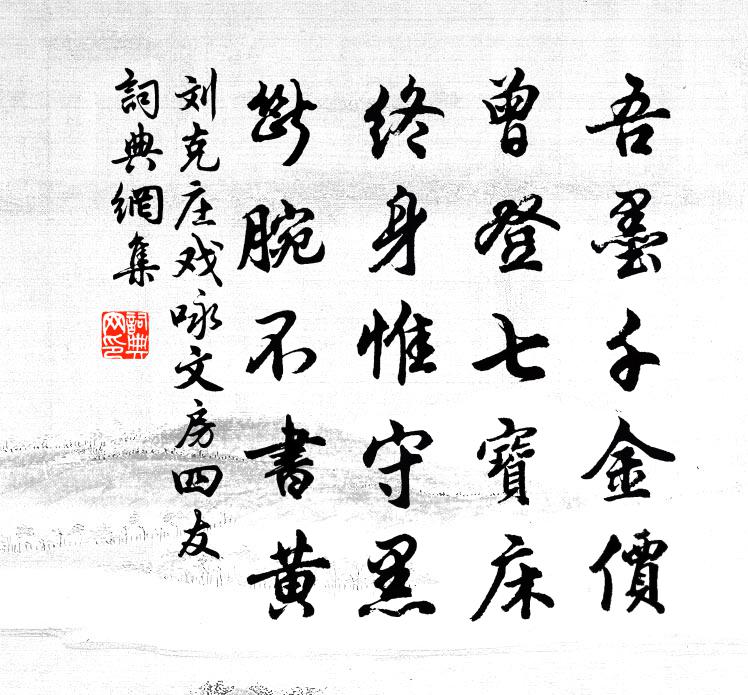 吾墨千金價
曾登七寶床
終身惟守黑
斷腕不書黃
刘克庄戏咏文房四友
詞典網集
詞典
网印